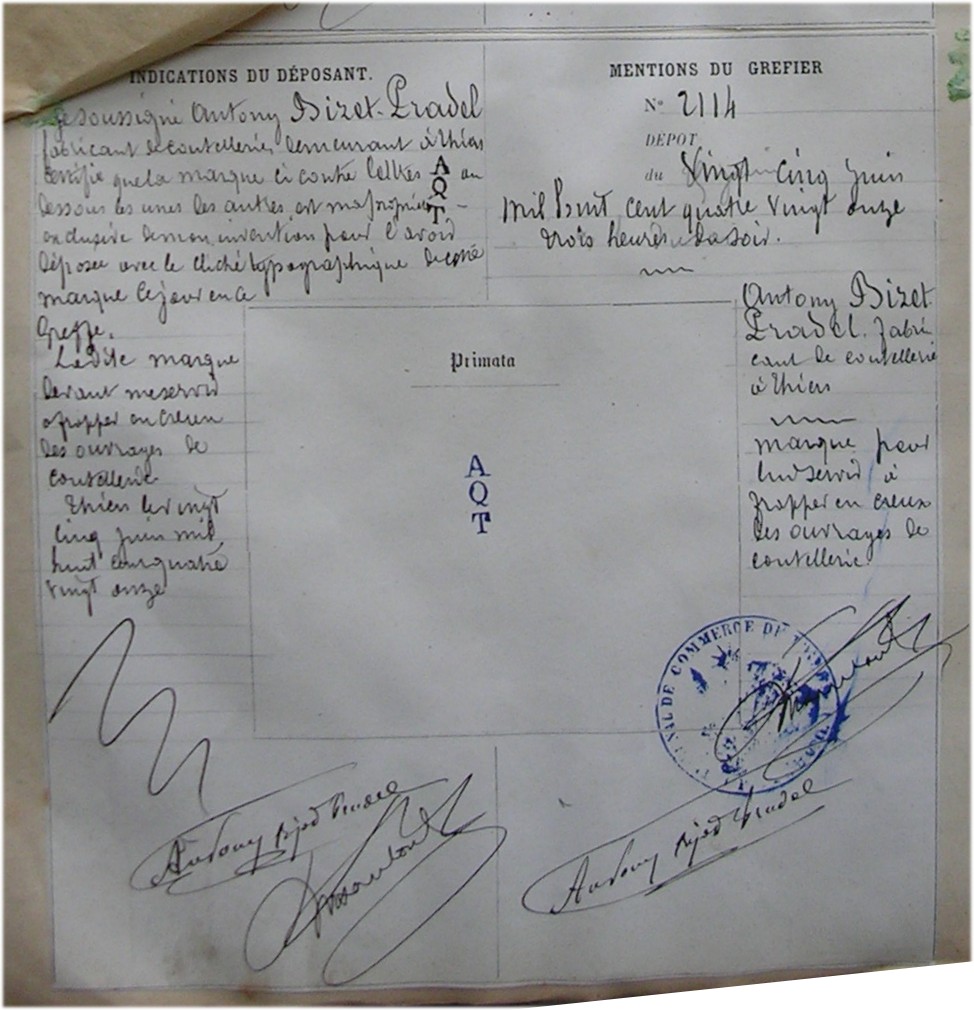 INDICATIONS DU DÉPOSANT.
Je soussigné Antony Bizet-Pradel
fabricant de coutellerie, demeurant à Thiers
certifie que la marque ci contre lettres A Q T au
dessous les unes les autres, est ma propriété
exclusive de mon invention pour l'avoir
déposée avec le cliché typographique de cette
marque ce jour en ce
Greffe.
La dite marque
devant me servir
a frapper en creux
des ouvrages de
coutellerie
Thiers le vingt
cinq juin mil
huit cent quatre
vingt onze
MENTIONS DU GREFIER
N° 2114
DÉPOT
du Vingt cinq juin
mil huit cent quatre vingt onze
trois heures du soir.
Antony Bizet
Pradel. fabri
cant de coutellerie
à Thiers
marque pour
lui servir à
frapper en creux
des ouvrages de
coutellerie
Primata
A
Q
T
TRIBUNAL DE COMMERCE DE THIERS
Antony Bizet Pradel
Antony Bizet Pradel